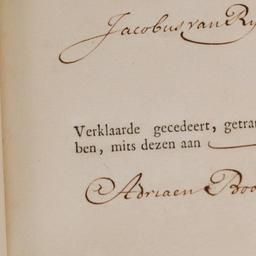 Jacobus van Ry
Verklaarde gecedeert, getra
ben, mits dezen aan
Adriaen Boo